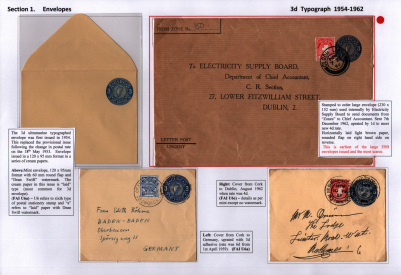 Section 1.    Envelopes
3d Typograph 1954-1962
To ELECTRICITY SUPPLY BOARD,
Department of Chief Accountant,
C. R. Section,
27, LOWER FITZWILLIAM STREET,
DUBLIN, 2.
LETTER POST
URGENT
Stamped to order large envelope (230 x
152 mm) used internally by Electricity
Supply Board to send documents from
"Cones" to Chief Accountant. Sent 7th
December 1962, uprated by 1d to meet
new 4d rate.
Horizontally laid light brown paper,
rounded flap on right hand side on
reverse.
This is earliest of the large ESB
envelopes issued and the most scarce.
The 3d ultramarine typographed
envelope was first issued in 1954.
This replaced the provisional issue
following the change in postal rate
on the 18th May 1953. Envelope
issued in a 120 x 95 mm format in a
series of cream papers.
Above: Mint envelope, 120 x 95mm
format with 60 mm round flap and
"Dean Swift" watermark. The
cream paper in this issue is "laid"
type (most common for 3d
envelope).
(FAI U6a) - U6 refers to sixth type
of postal stationery stamp and "a"
refers to "laid" paper with Dean
Swift watermark.
Right: Cover from Cork
to Dublin, August 1962
when rate was 4d.
(FAI U6c) - details as per
mint except no watermark.
Left: Cover from Cork to
Germany, uprated with 3d
adhesive (rate was 6d from
1st April 1959). (FAI U6a)
From Edith Böhme
BADEN-BADEN
GERMANY
The Lodge